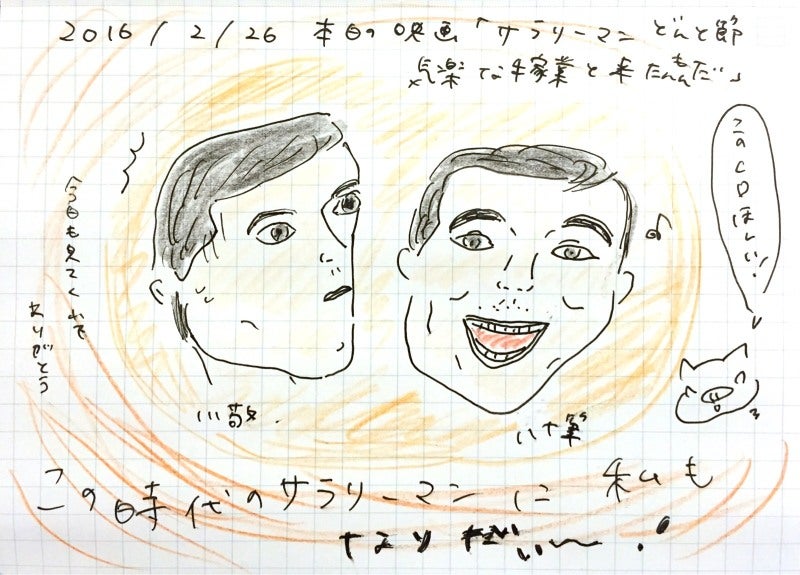 2016/2/26 本日の映画「サラリーマン どんと節
気楽な稼業と来たもんだ」
このCDほしい!
今日も見てくれて
ありがとう
この時代のサラリーマンに 私も
なりたいい〜!